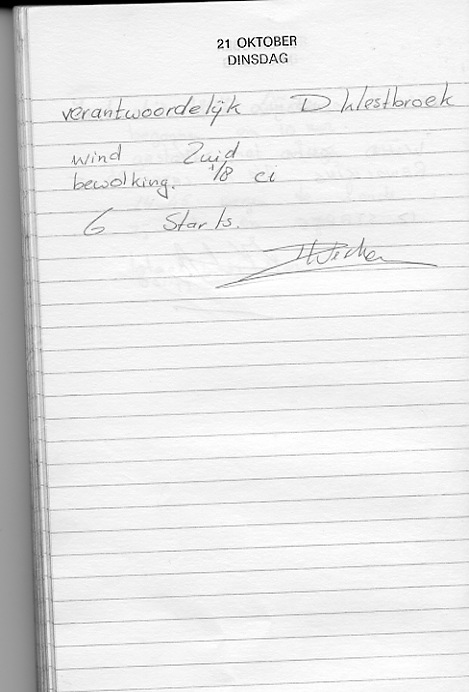 21 OKTOBER
DINSDAG
verantwoordelijk D Westbroek
wind Zuid
bewolking. 1/8 ci
6 Starts.